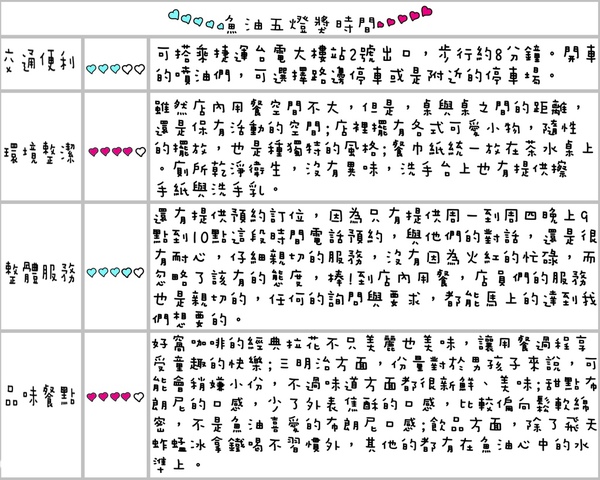 魚油五燈獎時間
交通便利
可搭乘捷運台電大樓站2號出口，步行約8分鐘。開車
的噴油們，可選擇路邊停車或是附近的停車場。
環境整潔
雖然店內用餐空間不大，但是，桌與桌之間的距離，
還是保有活動的空間;店裡擺有各式可愛小物，隨性
的擺放，也是種獨特的風格;餐巾紙統一放在茶水桌上
。廁所乾淨衛生，沒有異味，洗手台上也有提供擦
手紙與洗手乳。
整體服務
還有提供預約訂位，因為只有提供周一到周四晚上9
點到10點這段時間電話預約，與他們的對話，還是很
有耐心，仔細親切的服務，沒有因為火紅的忙碌，而
忽略了該有的態度，棒!到店內用餐，店員們的服務
也是親切的，任何的詢問與要求，都能馬上的達到我
們想要的。
品味餐點
好窩咖啡的經典拉花不只美麗也美味，讓用餐過程享
受童趣的快樂;三明治方面，份量對於男孩子來說，可
能會稍嫌小份，不過味道方面都很新鮮、美味;甜點布
朗尼的口感，少了外表焦酥的口感，比較偏向鬆軟綿
密，不是魚油喜愛的布朗尼口感;飲品方面，除了飛天
蚱蜢冰拿鐵喝不習慣外，其他的都有在魚油心中的水
準上。